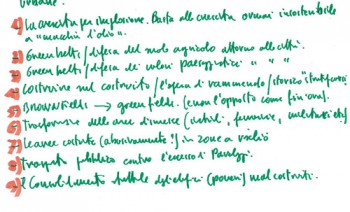 1) La crescita per implosione. Basta alla crescita ormai incontrollabile
a "macchia d'olio".
2) Green belts / difesa del suolo agricolo attorno alle città.
3) Green belts / difesa dei valori paesaggistici " " "
4) Costruire sul costruito / l'opera di rammendo / storico
5) Brownfields → greenfields. (e non l'opposto come fin ora).
6) Trasformare delle aree dismesse (industriali, ferroviarie, militari etc)
7) le aree costruite (abusivamente!) in zone a rischio
8) trasporto pubblico contro l'eccesso di Parcheggi.
9) il Consolidamento degli edifici (poveri) mal costruiti.